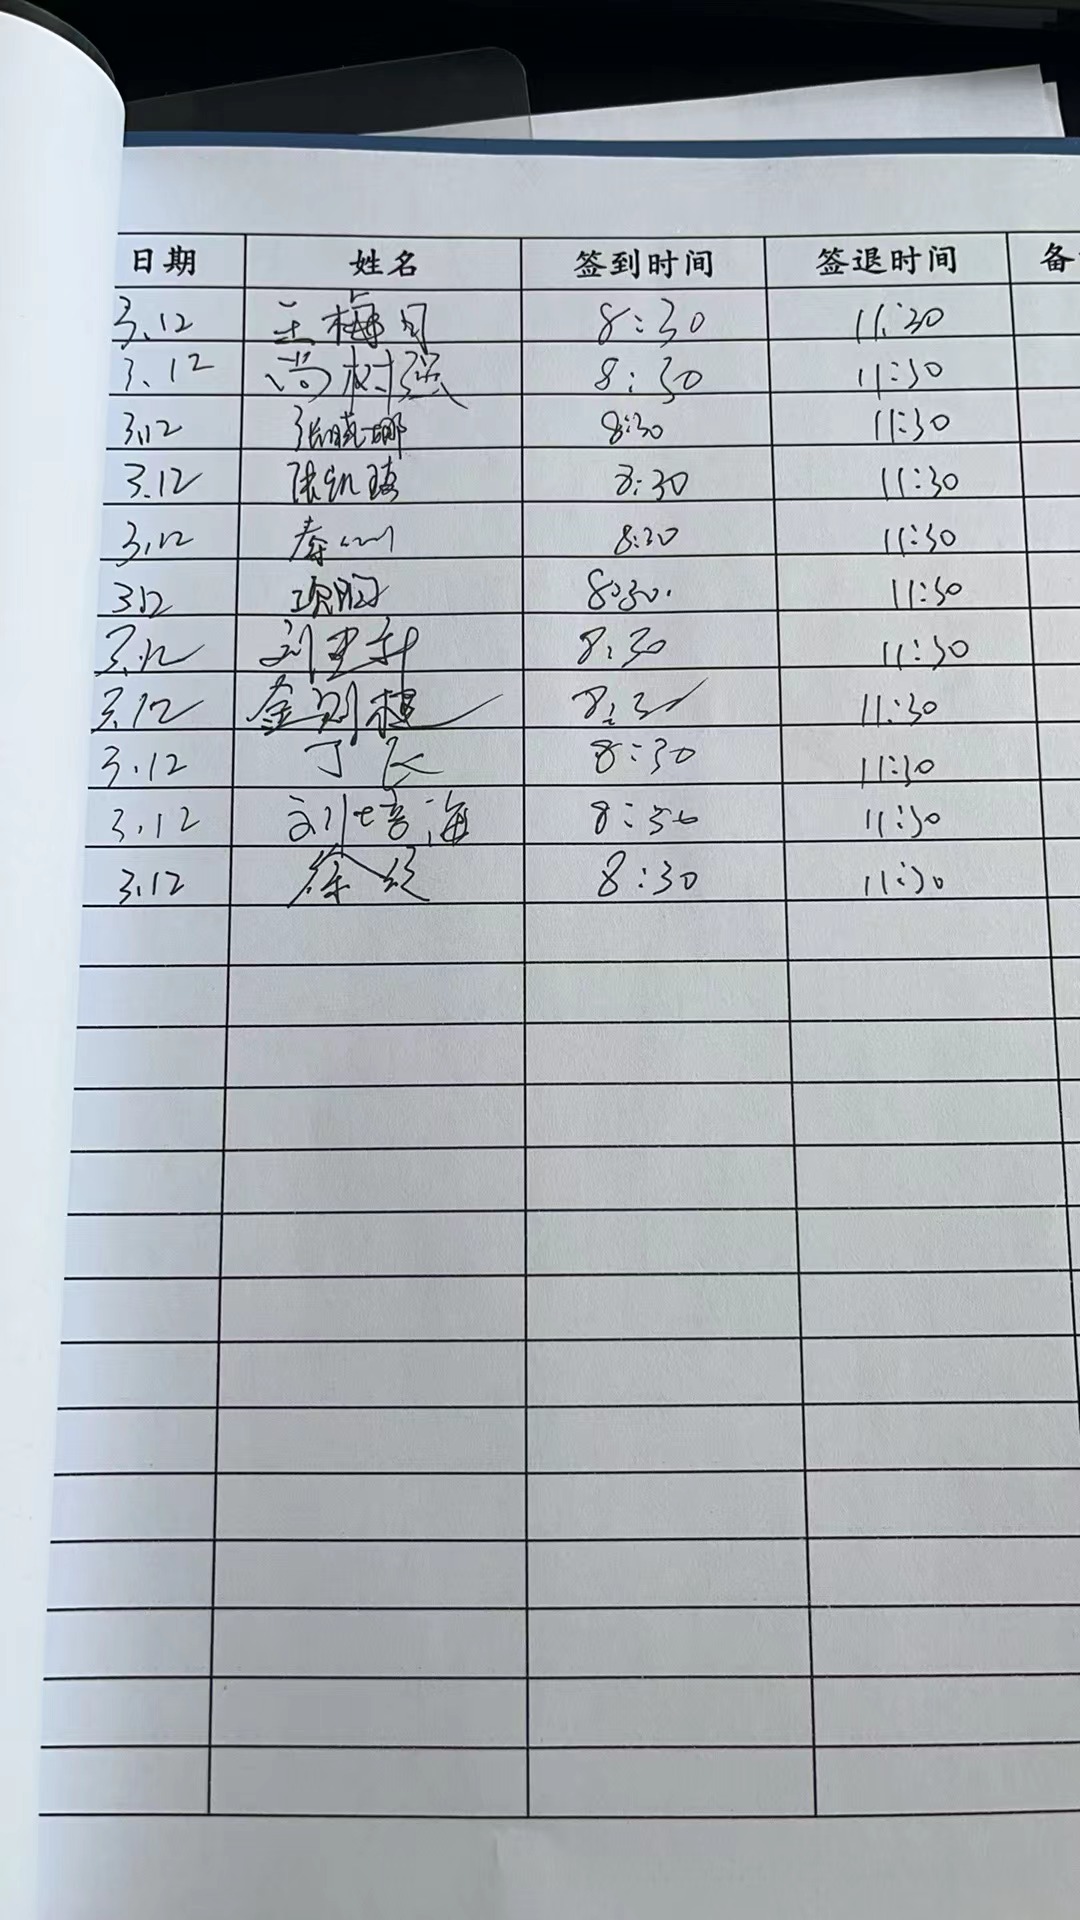 日期 姓名 签到时间 签退时间 备
3.12 王梅月 8:30 11:30
3.12 尚树强 8:30 11:30
3.12 张晓娜 8:30 11:30
3.12 张凯 8:30 11:30
3.12 秦 8:30 11:30
3.12 8:30. 11:30
3.12 刘 8:30 11:30
3.12 金 8:3 11:30
3.12 丁 8:30 11:30
3.12 刘培海 8:30 11:30
3.12 徐 8:30 11:30